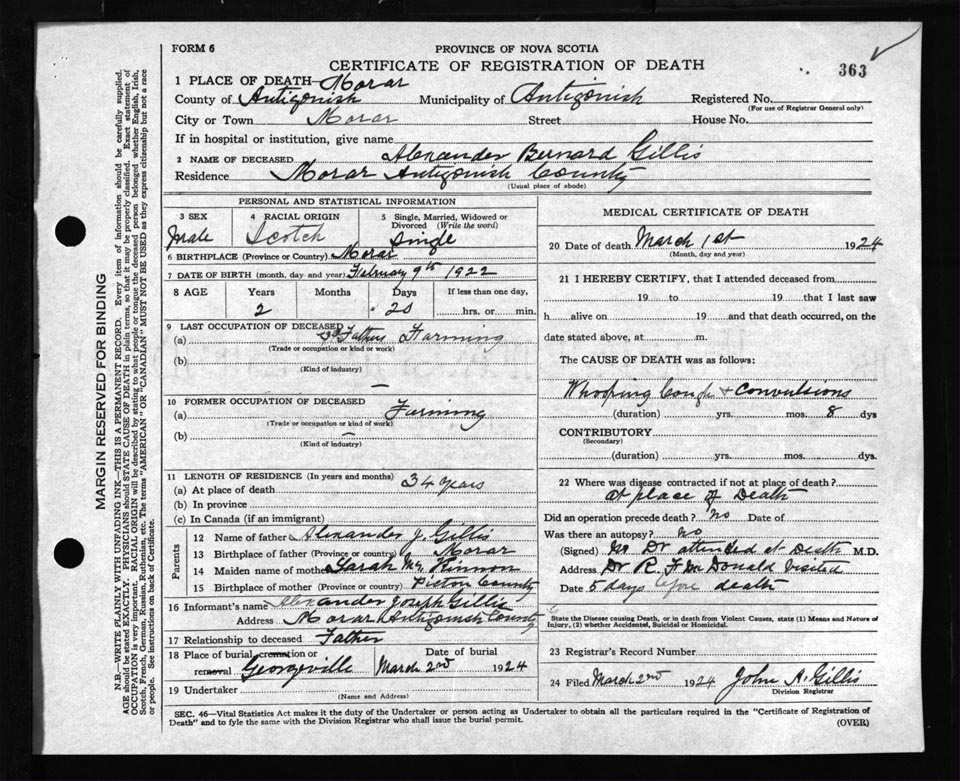 FORM 6
PROVINCE OF NOVA SCOTIA
CERTIFICATE OF REGISTRATION OF DEATH
363
1 PLACE OF DEATH Morar
County of Antigonish Municipality of Antigonish Registered No.
(For use of Registrar General only)
City or Town Morar Street House No.
If in hospital or institution, give name
2 NAME OF DECEASED Alexander Bernard Gillis
Residence Morar Antigonish County
(Usual place of abode)
PERSONAL AND STATISTICAL INFORMATION
3 SEX 4 RACIAL ORIGIN 5 Single, Married, Widowed or Divorced (Write the word)
Male Scotch Single
6 BIRTHPLACE (Province or Country) Morar
7 DATE OF BIRTH (month, day and year) February 9th 1922
8 AGE Years Months Days If less than one day,
2 20 hrs. or min.
9 LAST OCCUPATION OF DECEASED
(a) Fathers Farming
(Trade or occupation or kind of work)
(b)
(Kind of industry)
10 FORMER OCCUPATION OF DECEASED
(a) Farming
(Trade or occupation or kind of work)
(b) —
(Kind of industry)
11 LENGTH OF RESIDENCE (In years and months) 34 years
(a) At place of death
(b) In province
(c) In Canada (if an immigrant)
Parents
12 Name of father Alexander J. Gillis
13 Birthplace of father (Province or country) Morar
14 Maiden name of mother Sarah Mc Kinnon
15 Birthplace of mother (Province or country) Pictou County
16 Informant's name Alexander Joseph Gillis
Address Morar Antigonish County
17 Relationship to deceased Father
18 Place of burial cremation or
removal Georgeville March 2nd 1924
19 Undertaker
(Name and Address)
MEDICAL CERTIFICATE OF DEATH
20 Date of death March 1st 1924
(Month, day and year)
21 I HEREBY CERTIFY, that I attended deceased from
19 to 19 that I last saw
h alive on 19 and that death occurred, on the
date stated above, at m.
The CAUSE OF DEATH was as follows:
Whooping Cough & Convulsions
(duration) yrs. mos. 8 dys
CONTRIBUTORY
(Secondary)
(duration) yrs. mos. dys.
22 Where was disease contracted if not at place of death?
at place of Death
Did an operation precede death? No Date of
Was there an autopsy? No
(Signed) No Dr attended at Death M.D.
Address Dr R. F McDonald visited
Date 5 days before death
State the Disease causing Death, or in death from Violent Causes, state (1) Means and Nature of
Injury, (2) whether Accidental, Suicidal or Homicidal.
23 Registrar's Record Number
24 Filed March 2nd 1924 John A. Gillis
Division Registrar
SEC. 46—Vital Statistics Act makes it the duty of the Undertaker or person acting as Undertaker to obtain all the particulars required in the "Certificate of Registration of
Death" and to file the same with the Division Registrar who shall issue the burial permit.
(OVER)
MARGIN RESERVED FOR BINDING
N.B.—WRITE PLAINLY WITH UNFADING INK—THIS IS A PERMANENT RECORD. Every item of information should be carefully supplied.
AGE should be stated EXACTLY. PHYSICIANS should STATE CAUSE OF DEATH in plain terms, so that it may be properly classified. Exact statement of
OCCUPATION is very important. RACIAL ORIGIN will be described by stating to what people or tongue the deceased person belonged whether English, Irish,
Scotch, French, German, Russian, Ruthenian, etc. The terms "AMERICAN" OR "CANADIAN" MUST NOT BE USED as they express citizenship but not a race
or people. See instructions on back of Certificate.